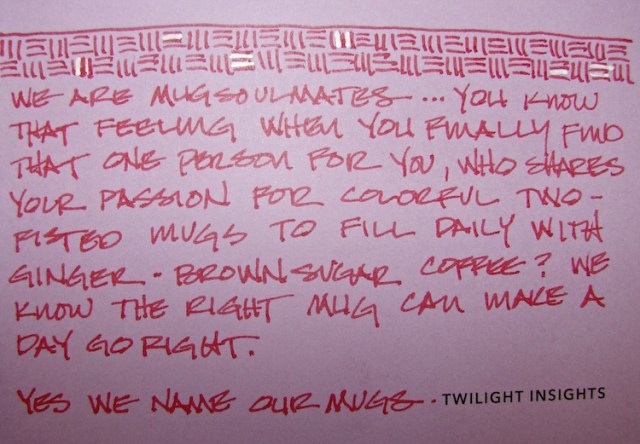 WE ARE MUG SOULMATES ... YOU KNOW
THAT FEELING WHEN YOU FINALLY FIND
THAT ONE PERSON FOR YOU, WHO SHARES
YOUR PASSION FOR COLORFUL TWO-
FISTED MUGS TO FILL DAILY WITH
GINGER-BROWN SUGAR COFFEE? WE
KNOW THE RIGHT MUG CAN MAKE A
DAY GO RIGHT.
YES WE NAME OUR MUGS. TWILIGHT INSIGHTS